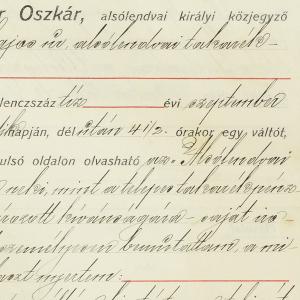 r Oszkár, alsólendvai királyi közjegyző
ajos úr, alsólendvai takarék-
lenczszáz tíz évi szeptember
napján, délután 4 1/2. órakor egy váltót,
ulsó oldalon olvasható az „Alsólendvai
neki, mint a telepes takarékpénz
kívánságára – saját
személyesen bemutattam, a mi
laszt nyertem: